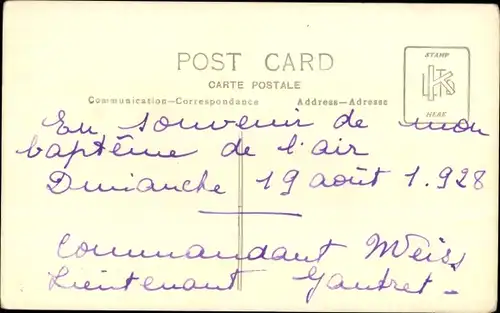 POST CARD
CARTE POSTALE
Communication-Correspondance
Address-Adresse
STAMP
HERE
En souvenir de mon
baptême de l'air
Dimanche 19 août 1.928
Commandant Weiss
Lieutenant Gautret